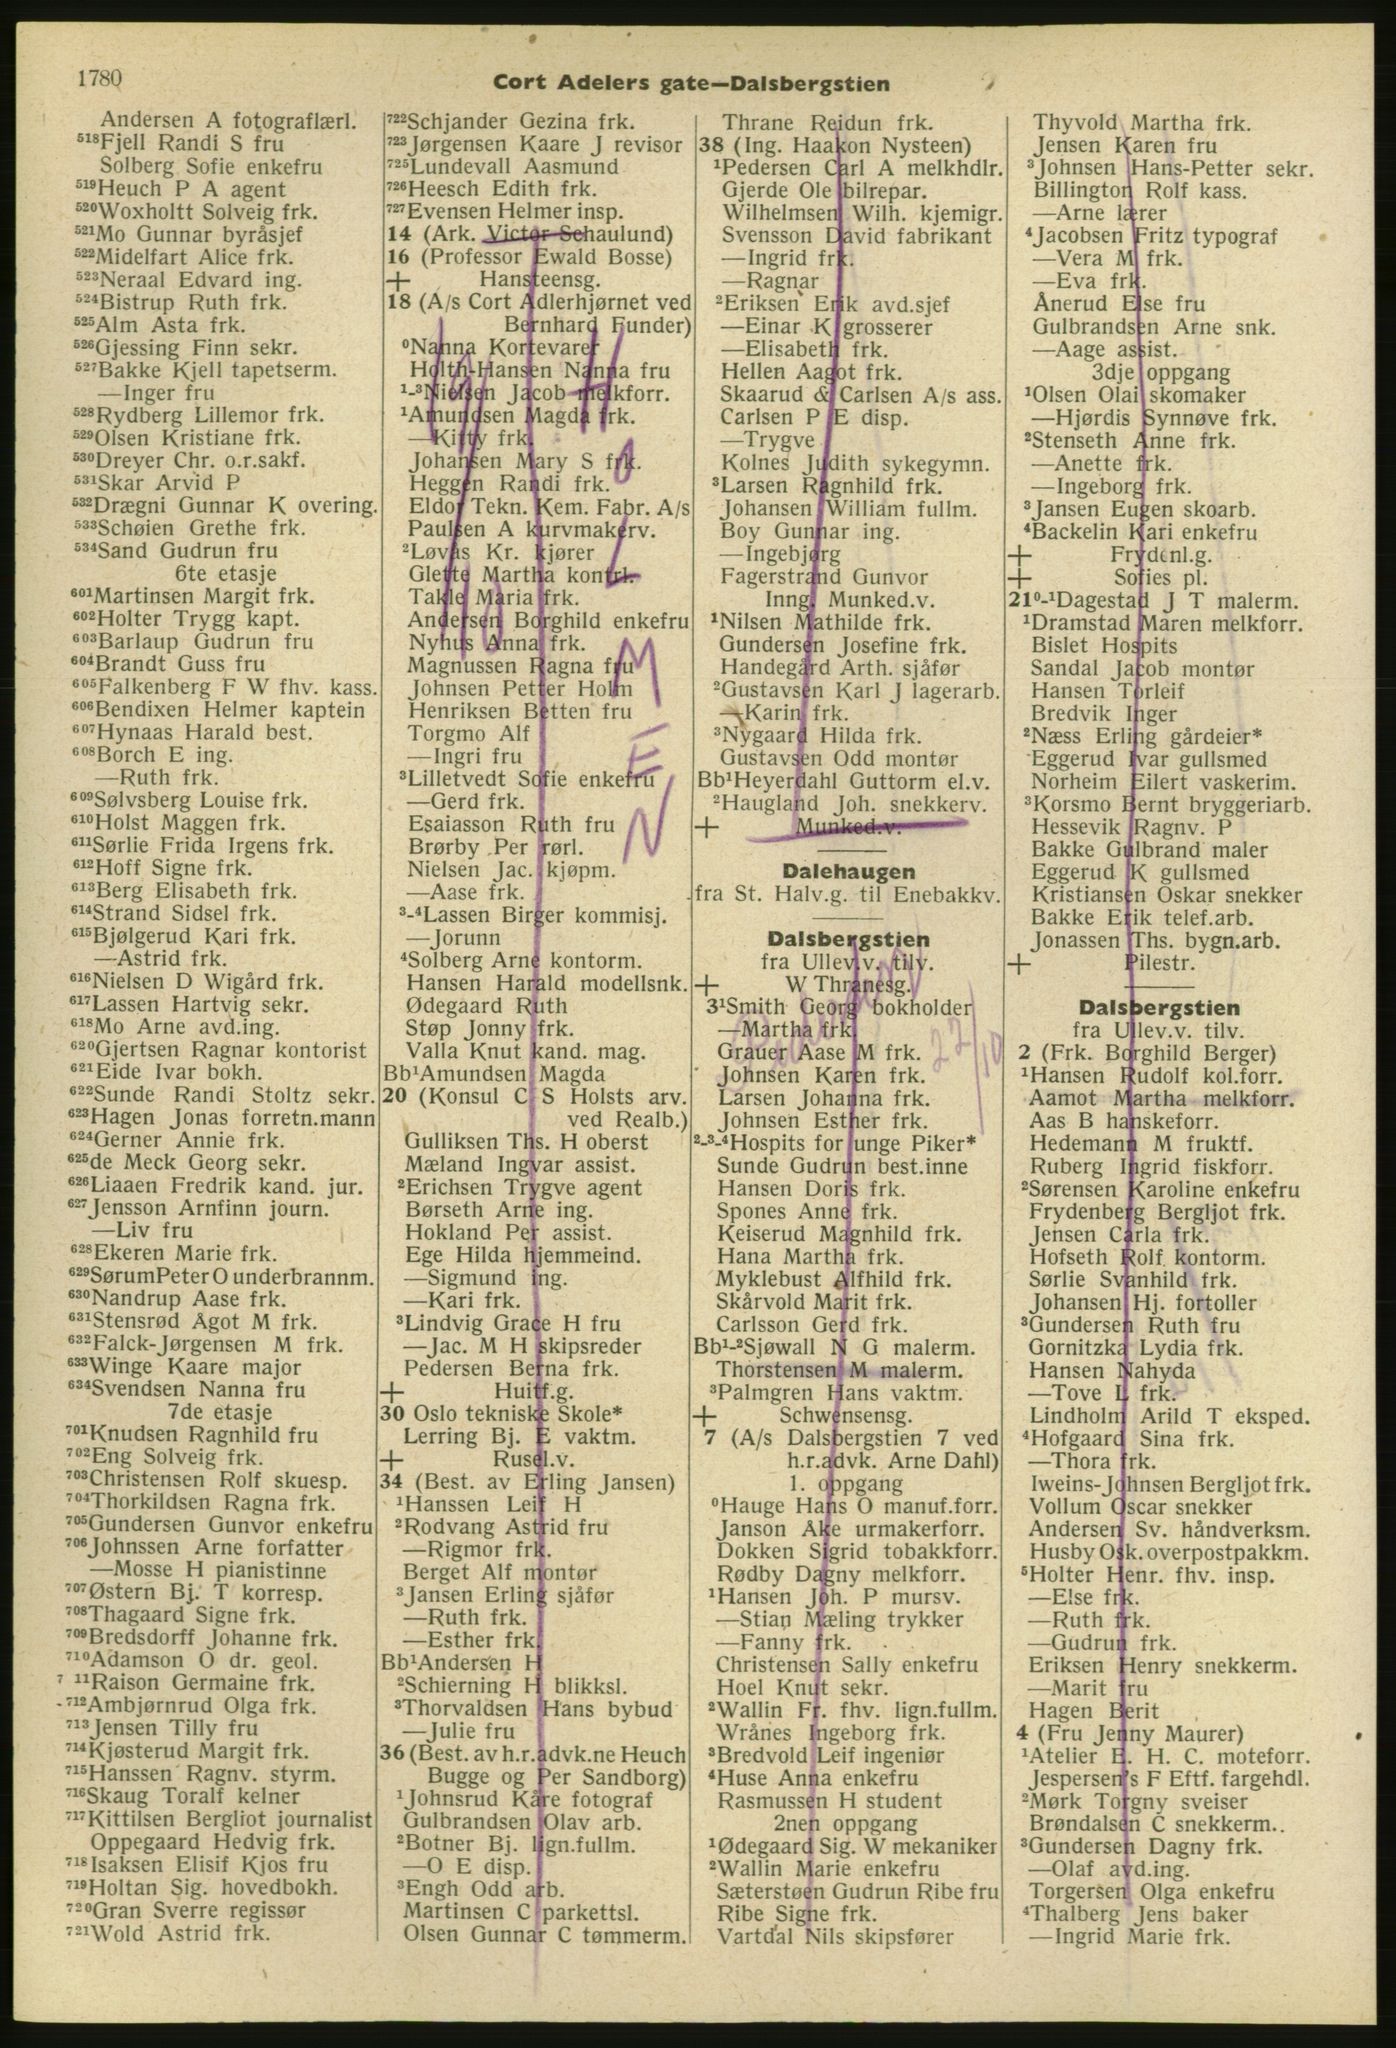 1780
Cort Adelers gate—Dalsbergstien
Andersen A fotograflærl.
518Fjell Randi S fru
Solberg Sofie enkefru
519Heuch P A agent
520Woxholtt Solveig frk.
521Mo Gunnar byråsjef
522Midelfart Alice frk.
523Neraal Edvard ing.
524Bistrup Ruth frk.
525Alm Asta frk.
526Gjessing Finn sekr.
527Bakke Kjell tapetserm.
—Inger fru
528Rydberg Lillemor frk.
529Olsen Kristiane frk.
530Dreyer Chr. o.r.sakf.
531Skar Arvid P
532Drægni Gunnar K overing.
533Schøien Grethe frk.
534Sand Gudrun fru
6te etasje
601Martinsen Margit frk.
602Holter Trygg kapt.
603Barlaup Gudrun fru
604Brandt Guss fru
605Falkenberg F W fhv. kass.
606Bendixen Helmer kaptein
607Hynaas Harald best.
608Borch E ing.
—Ruth frk.
609Sølvsberg Louise frk.
610Holst Maggen frk.
611Sørlie Frida Irgens frk.
612Hoff Signe frk.
613Berg Elisabeth frk.
614Strand Sidsel frk.
615Bjølgerud Kari frk.
—Astrid frk.
616Nielsen D Wigård frk.
617Lassen Hartvig sekr.
618Mo Arne avd.ing.
620Gjertsen Ragnar kontorist
621Eide Ivar bokh.
622Sunde Randi Stoltz sekr.
623Hagen Jonas forretn.mann
624Gerner Annie frk.
625de Meck Georg sekr.
626Liaaen Fredrik kand. jur.
627Jensson Arnfinn journ.
—Liv fru
628Ekeren Marie frk.
629SørumPeterO underbrannm.
630Nandrup Aase frk.
631Stensrød Ågot M frk.
632Falck-Jørgensen M frk.
633Winge Kaare major
634Svendsen Nanna fru
7de etasje
701Knudsen Ragnhild fru
702Eng Solveig frk.
703Christensen Rolf skuesp.
704Thorkildsen Ragna frk.
705Gundersen Gunvor enkefru
706Johnssen Arne forfatter
—Mosse H pianistinne
707Østern Bj. T korresp.
708Thagaard Signe frk.
709Bredsdorff Johanne frk.
710Adamson O dr. geol.
7 11Raison Germaine frk.
712Ambjørnrud Olga frk.
713Jensen Tilly fru
714Kjøsterud Margit frk.
715Hanssen Ragnv. styrm.
716Skaug Toralf kelner
717Kittilsen Bergliot journalist
Oppegaard Hedvig frk.
718Isaksen Elisif Kjos fru
719Holtan Sig. hovedbokh.
720Gran Sverre regissør
721Wold Astrid frk.
722Schjander Gezina frk.
723Jørgensen Kaare J revisor
725Lundevall Aasmund
726Heesch Edith frk.
727Evensen Helmer insp.
14 (Ark. Victor Schaulund)
16 (Professor Ewald Bosse)
+ Hansteensg.
18 (A/s Cort Adlerhjørnet ved
Bernhard Funder)
0Nanna Kortevarer
Holth-Hansen Nanna fru
1-3Nielsen Jacob melkforr.
1Amundsen Magda frk.
—Kitty frk.
Johansen Mary S frk.
Heggen Randi frk.
Eldor Tekn. Kem. Fabr. A/s
Paulsen A kurvmakerv.
2Løvås Kr. kjører
Glette Martha kontrl.
Takle Maria frk.
Andersen Borghild enkefru
Nyhus Anna frk.
Magnussen Ragna fru
Johnsen Petter Holm
Henriksen Betten fru
Torgmo Alf
—Ingri fru
3Lilletvedt Sofie enkefru
—Gerd frk.
Esaiasson Ruth fru
Brørby Per rørl.
Nielsen Jac. kjøpm.
—Aase frk.
3-4Lassen Birger kommisj.
—Jorunn
4Solberg Arne kontorm.
Hansen Harald modellsnk.
Ødegaard Ruth
Støp Jonny frk.
Valla Knut kand. mag.
Bb1Amundsen Magda
20 (Konsul C S Holsts arv.
ved Realb.)
Gulliksen Ths. H oberst
Mæland Ingvar assist.
2Erichsen Trygve agent
Børseth Arne ing.
Hokland Per assist.
Ege Hilda hjemmeind.
—Sigmund ing.
—Kari frk.
3Lindvig Grace H fru
—Jac. M H skipsreder
Pedersen Berna frk.
+ Huitf.g.
30 Oslo tekniske Skole*
Lerring Bj. E vaktm.
+ Rusel.v.
34 (Best. av Erling Jansen)
1Hanssen Leif H
2Rodvang Astrid fru
—Rigmor frk.
Berget Alf montør
3Jansen Erling sjåfør
—Ruth frk.
—Esther frk.
Bb1Andersen H
2Schierning H blikksl.
3Thorvaldsen Hans bybud
—Julie fru
36 (Best. av h.r.advk.ne Heuch
Bugge og Per Sandborg)
1Johnsrud Kåre fotograf
Gulbrandsen Olav arb.
2Botner Bj. lign.fullm.
—O E disp.
3Engh Odd arb.
Martinsen C parkettsl.
Olsen Gunnar C tømmerm.
HOLMEN
Thrane Reidun frk.
38 (Ing. Haakon Nysteen)
1Pedersen Carl A melkhdlr.
Gjerde Ole bilrepar.
Wilhelmsen Wilh. kjemigr.
Svensson David fabrikant
—Ingrid frk.
—Ragnar
2Eriksen Erik avd.sjef
—Einar K grosserer
—Elisabeth frk.
Hellen Aagot frk.
Skaarud & Carlsen A/s ass.
Carlsen P E disp.
—Trygve
Kolnes Judith sykegymn.
3Larsen Ragnhild frk.
Johansen William fullm.
Boy Gunnar ing.
—Ingebjørg
Fagerstrand Gunvor
Inng. Munked.v.
1Nilsen Mathilde frk.
Gundersen Josefine frk.
Handegård Arth. sjåfør
2Gustavsen Karl J lagerarb.
—Karin frk.
3Nygaard Hilda frk.
Gustavsen Odd montør
Bb1Heyerdahl Guttorm el.v.
2Haugland Joh. snekkerv.
+ Munked.v.
Dalehaugen
fra St. Halv.g. til Enebakkv.
Dalsbergstien
fra Ullev.v. tilv.
+ W Thranesg.
31Smith Georg bokholder
—Martha frk.
Grauer Aase M frk.
Johnsen Karen frk.
Larsen Johanna frk.
Johnsen Esther frk.
2-3-4Hospits for unge Piker*
Sunde Gudrun best.inne
Hansen Doris frk.
Spones Anne frk.
Keiserud Magnhild frk.
Hana Martha frk.
Myklebust Alfhild frk.
Skårvold Marit frk.
Carlsson Gerd frk.
Bb1-2Sjøwall N G malerm.
Thorstensen M malerm.
3Palmgren Hans vaktm.
+ Schwensensg.
7 (A/s Dalsbergstien 7 ved
h.r.advk. Arne Dahl)
1. oppgang
0Hauge Hans O manuf.forr.
Janson Åke urmakerforr.
Dokken Sigrid tobakkforr.
Rødby Dagny melkforr.
1Hansen Joh. P mursv.
—Stian Mæling trykker
—Fanny frk.
Christensen Sally enkefru
Hoel Knut sekr.
2Wallin Fr. fhv. lign.fullm.
Wrånes Ingeborg frk.
3Bredvold Leif ingeniør
4Huse Anna enkefru
Rasmussen H student
2nen oppgang
1Ødegaard Sig. W mekaniker
2Wallin Marie enkefru
Sæterstøen Gudrun Ribe fru
Ribe Signe frk.
Vartdal Nils skipsfører
22/10
Thyvold Martha frk.
Jensen Karen fru
3Johnsen Hans-Petter sekr.
Billington Rolf kass.
—Arne lærer
4Jacobsen Fritz typograf
—Vera M frk.
—Eva frk.
Ånerud Else fru
Gulbrandsen Arne snk.
—Aage assist.
3dje oppgang
1Olsen Olai skomaker
—Hjørdis Synnøve frk.
2Stenseth Anne frk.
—Anette frk.
—Ingeborg frk.
3Jansen Eugen skoarb.
4Backelin Kari enkefru
+ Frydenl.g.
+ Sofies pl.
210-1Dagestad J T malerm.
1Dramstad Maren melkforr.
Bislet Hospits
Sandal Jacob montør
Hansen Torleif
Bredvik Inger
2Næss Erling gårdeier*
Eggerud Ivar gullsmed
Norheim Eilert vaskerim.
3Korsmo Bernt bryggeriarb.
Hessevik Ragnv. P
Bakke Gulbrand maler
Eggerud K gullsmed
Kristiansen Oskar snekker
Bakke Erik telef.arb.
Jonassen Ths. bygn.arb.
+ Pilestr.
Dalsbergstien
fra Ullev.v. tilv.
2 (Frk. Borghild Berger)
1Hansen Rudolf kol.forr.
Aamot Martha melkforr.
Aas B hanskeforr.
Hedemann M fruktf.
Ruberg Ingrid fiskforr.
2Sørensen Karoline enkefru
Frydenberg Bergljot frk.
Jensen Carla frk.
Hofseth Rolf kontorm.
Sørlie Svanhild frk.
Johansen Hj. fortoller
3Gundersen Ruth fru
Gornitzka Lydia frk.
Hansen Nahyda
—Tove L frk.
Lindholm Arild T eksped.
4Hofgaard Sina frk.
—Thora frk.
Iweins-Johnsen Bergljot frk.
Vollum Oscar snekker
Andersen Sv. håndverksm.
Husby Osk. overpostpakkm.
5Holter Henr. fhv. insp.
—Else frk.
—Ruth frk.
—Gudrun frk.
Eriksen Henry snekkerm.
—Marit fru
Hagen Berit
4 (Fru Jenny Maurer)
1Atelier E. H. C. moteforr.
Jespersen's F Eftf. fargehdl.
2Mørk Torgny sveiser
Brøndalsen C snekkerm..
3Gundersen Dagny frk.
—Olaf avd.ing.
Torgersen Olga enkefru
4Thalberg Jens baker
—Ingrid Marie frk.